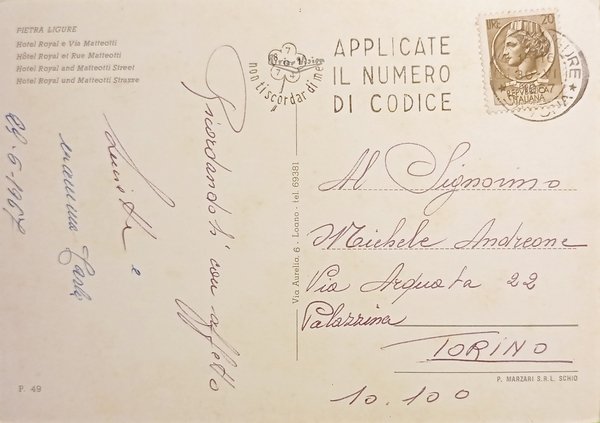 PIETRA LIGURE
Hotel Royal e Via Matteotti
Hôtel Royal et Rue Matteotti
Hotel Royal and Matteotti Street
Hotel Royal und Matteotti Strasse
non ti scordar di me
APPLICATE
IL NUMERO
DI CODICE
LIRE 20
REPUBBLICA
ITALIANA
Ricordandoti con affetto
e
mamma Carla
Via Aurelia, 6 - Loano - tel. 69381
Al Signorino
Michele Andreone
Via Arquata 22
Palazzina
TORINO
10.100
P. 49
P. MARZARI S.R.L. SCHIO